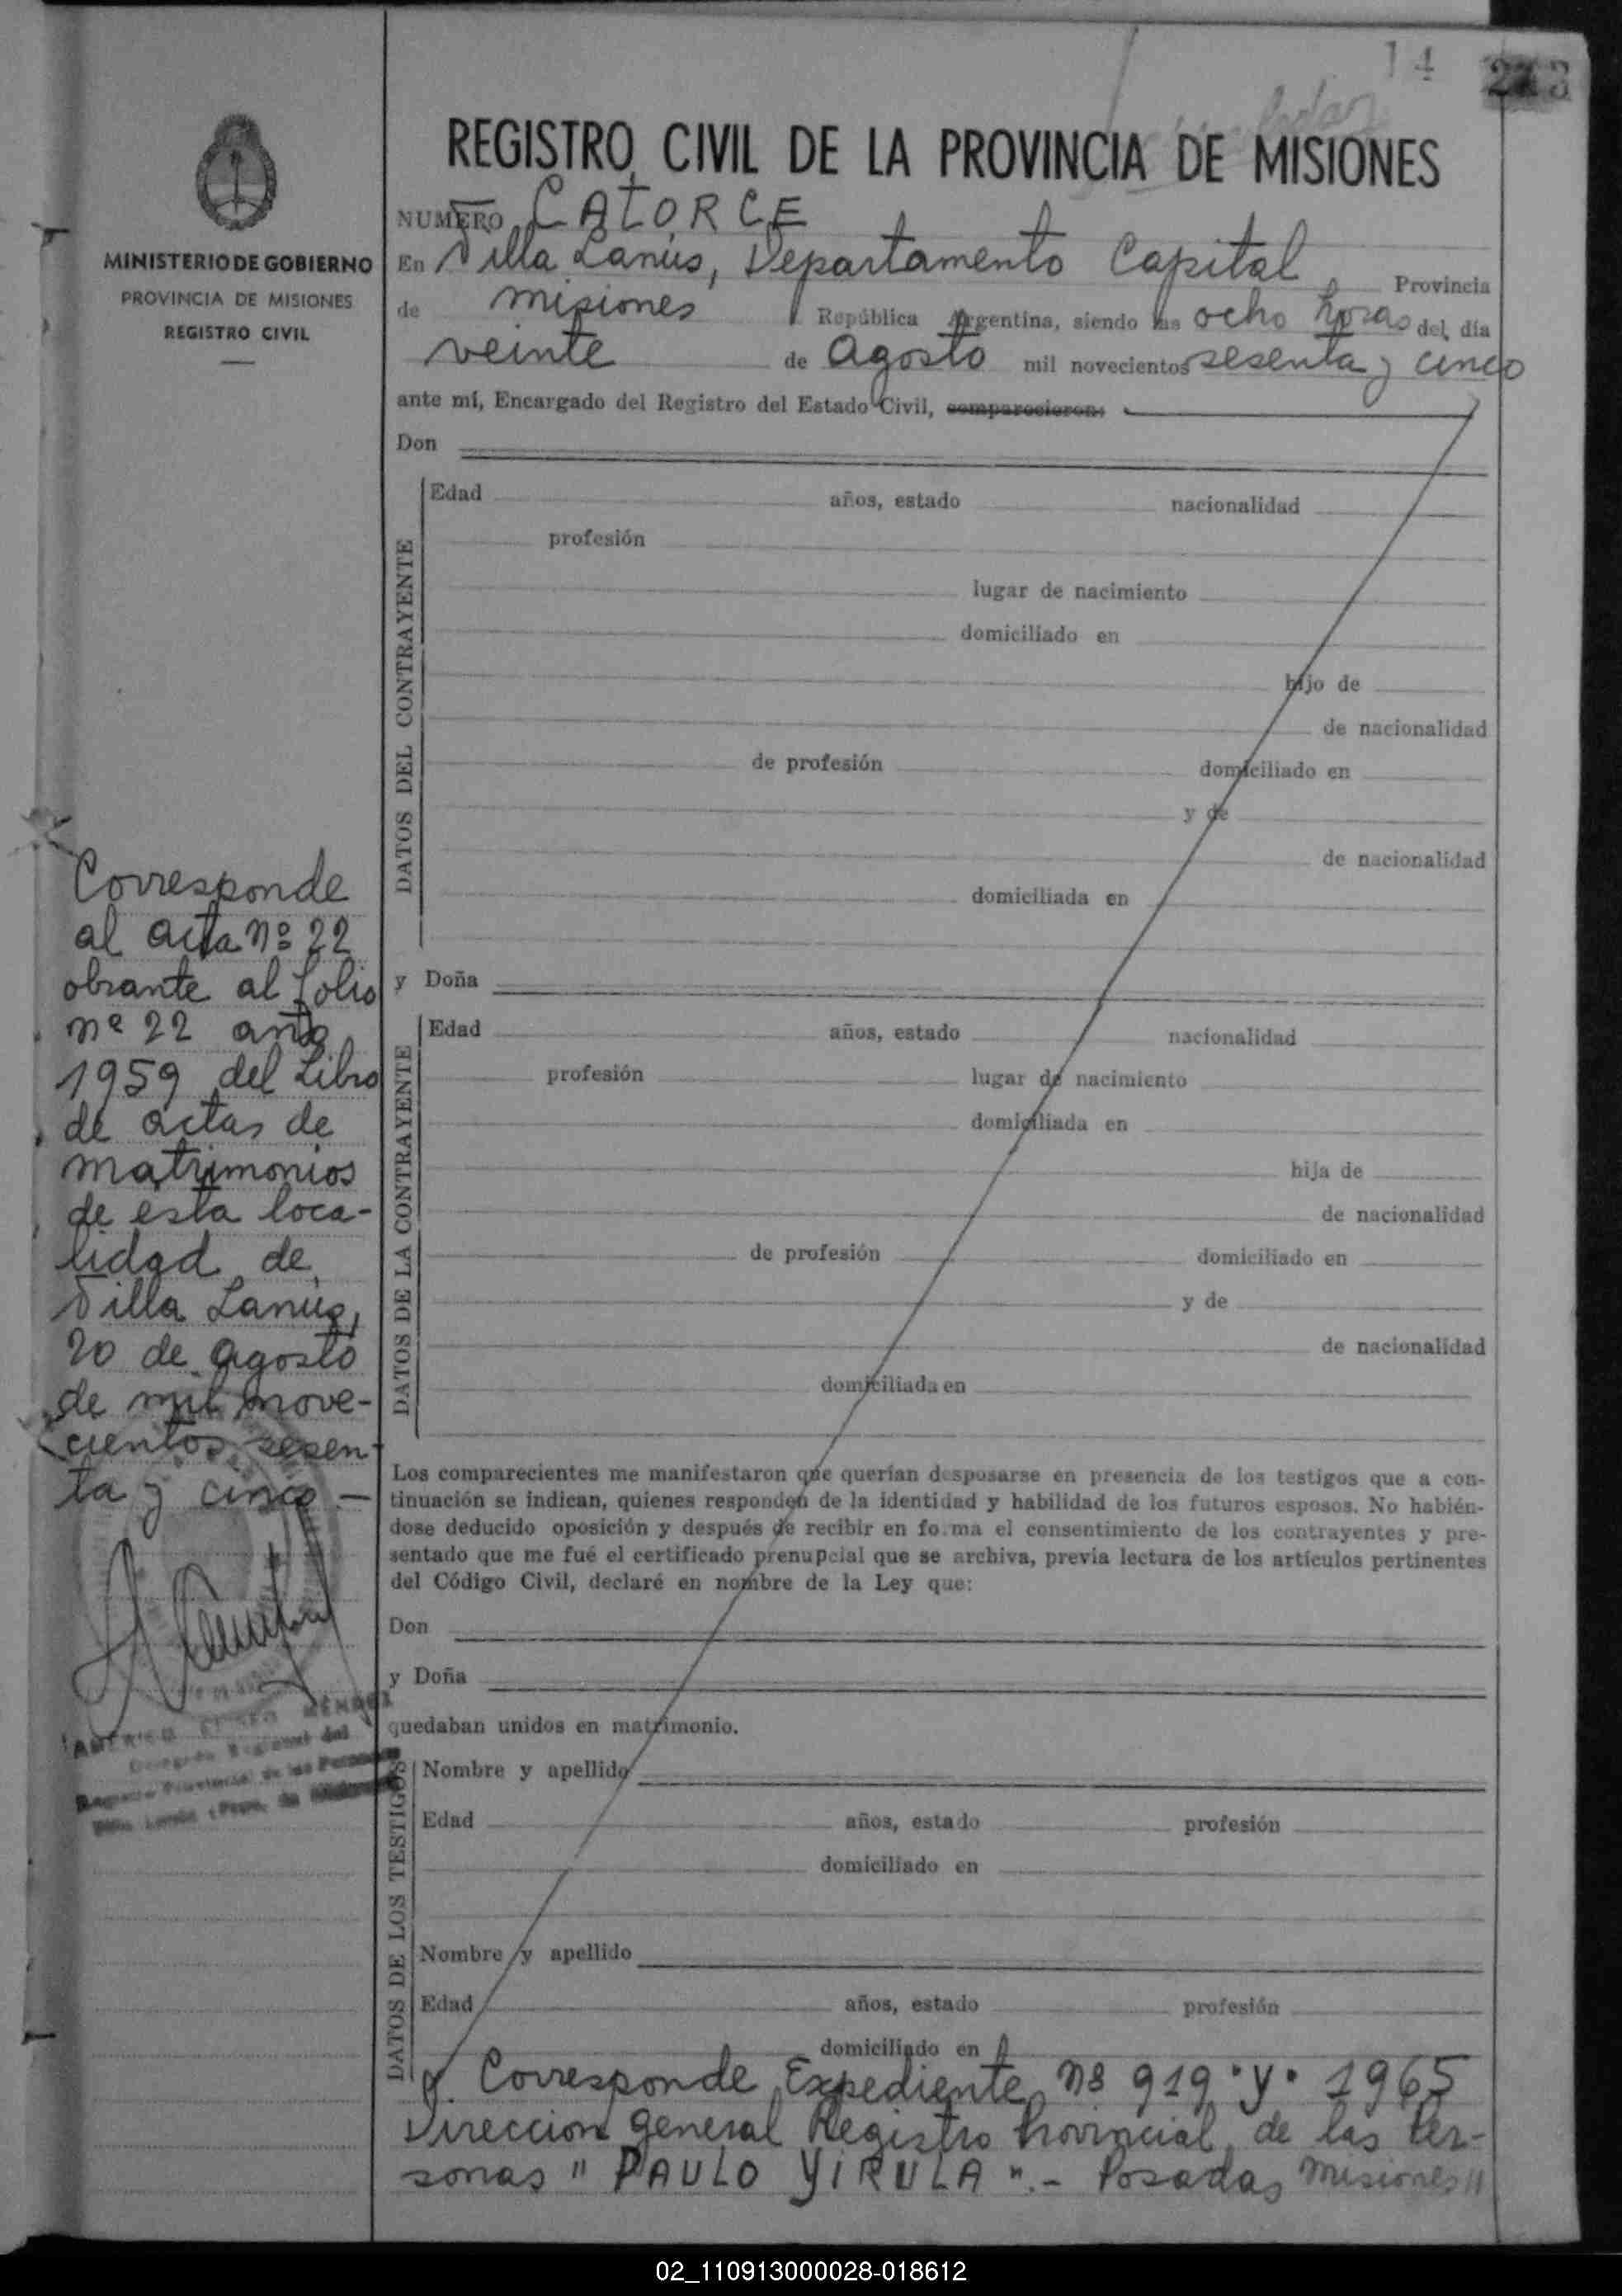 14
REGISTRO CIVIL DE LA PROVINCIA DE MISIONES
MINISTERIO DE GOBIERNO
PROVINCIA DE MISIONES
REGISTRO CIVIL
NUMERO CATORCE
En Villa Lanús, Departamento Capital Provincia
de misiones República Argentina, siendo las ocho horas del día
veinte de Agosto mil novecientos sesenta y cinco
ante mí, Encargado del Registro del Estado Civil, comparecieron:
Don
DATOS DEL CONTRAYENTE
Edad años, estado nacionalidad
profesión
lugar de nacimiento
domiciliado en
hijo de
de nacionalidad
de profesión domiciliado en
y de
de nacionalidad
domiciliada en
y Doña
DATOS DE LA CONTRAYENTE
Edad años, estado nacionalidad
profesión lugar de nacimiento
domiciliada en
hija de
de nacionalidad
de profesión domiciliado en
y de
de nacionalidad
domiciliada en
Los comparecientes me manifestaron que querían desposarse en presencia de los testigos que a con-
tinuación se indican, quienes responden de la identidad y habilidad de los futuros esposos. No habién-
dose deducido oposición y después de recibir en forma el consentimiento de los contrayentes y pre-
sentado que me fué el certificado prenupcial que se archiva, previa lectura de los artículos pertinentes
del Código Civil, declaré en nombre de la Ley que:
Don
y Doña
quedaban unidos en matrimonio.
DATOS DE LOS TESTIGOS
Nombre y apellido
Edad años, estado profesión
domiciliado en
Nombre y apellido
Edad años, estado profesión
domiciliado en
Corresponde Expediente nº 919 "Y" 1965
Direccion General Registro Provincial de las Per-
sonas " PAULO YIRULA ".- Posadas Misiones"
Corresponde
al acta nº 22
obrante al folio
nº 22 año
1959 del Libro
de actas de
matrimonios
de esta loca-
lidad de
Villa Lanús,
20 de agosto
de mil nove-
cientos sesen-
ta y cinco.-
AMERICO MENDEZ
Regional del
Registro Provincial de las Personas
Villa Lanús (Prov. de Misiones)
02_110913000028-018612